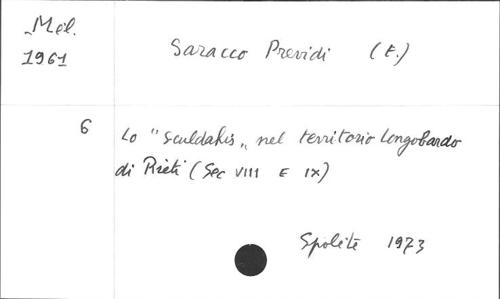 Mél.
1961
Saracco Previdi (E.)
6
Lo "Sculdahis" nel territorio longobardo
di Rieti (Sec VIII E IX)
Spolète 1973